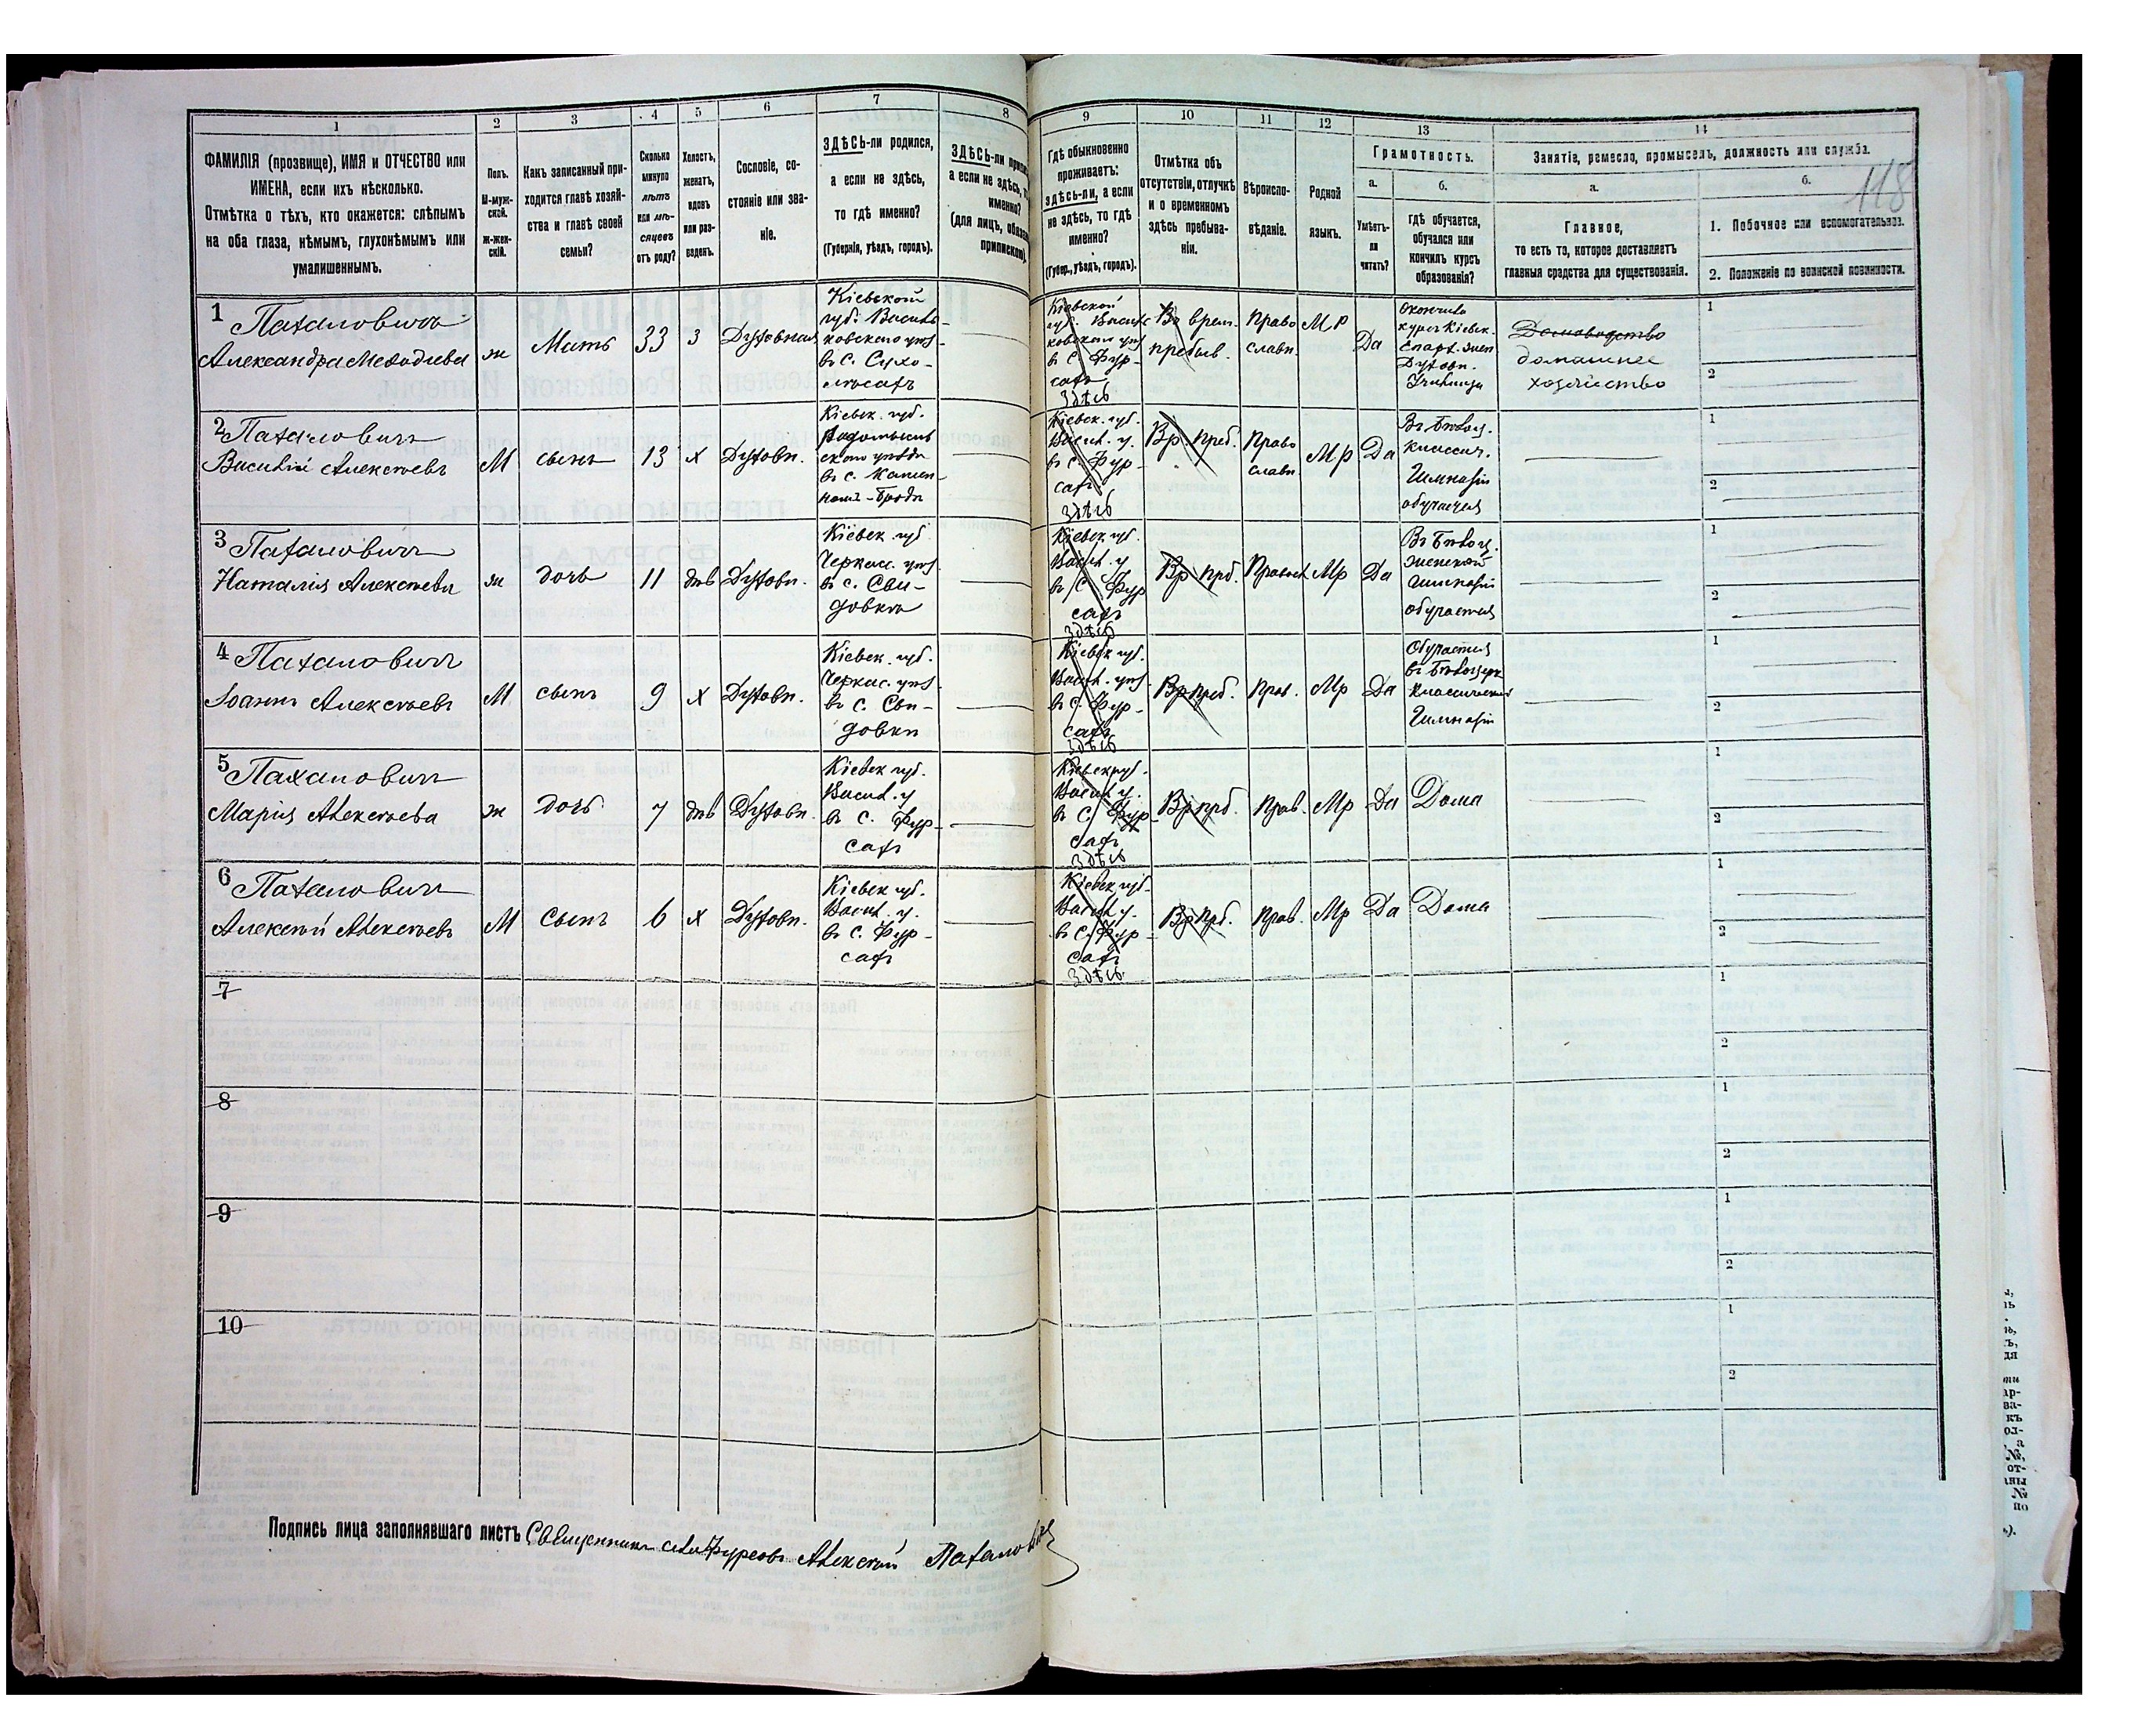 1
2
3
4
5
6
7
8
9
10
11
12
13
14
ФАМИЛІЯ (прозвище), ИМЯ и ОТЧЕСТВО или
ИМЕНА, если ихъ нѣсколько.
Отмѣтка о тѣхъ, кто окажется: слѣпымъ
на оба глаза, нѣмымъ, глухонѣмымъ или
умалишеннымъ.
Полъ.
М-муж-
ской.
Ж-жен-
скій.
Какъ записанный при-
ходится главѣ хозяй-
ства и главѣ своей
семьи?
Сколько
минуло
лѣтъ
или мѣ-
сяцевъ
отъ роду?
Холостъ,
женатъ,
вдовъ
или раз-
веденъ.
Сословіе, со-
стояніе или зва-
ніе.
ЗДѢСЬ-ли родился,
а если не здѣсь,
то гдѣ именно?
(Губернія, уѣздъ, городъ).
ЗДѢСЬ-ли
а если не здѣсь,
именно?
(для лицъ,
припискою).
Гдѣ обыкновенно
проживаетъ:
здѣсь-ли, а если
не здѣсь, то гдѣ
именно?
(Губер., уѣздъ, городъ).
Отмѣтка объ
отсутствіи, отлучкѣ
и о временномъ
здѣсь пребыва-
ніи.
Вѣроиспо-
вѣданіе.
Родной
языкъ.
Грамотность.
а.
Умѣетъ-
ли
читать?
б.
гдѣ обучается,
обучался или
кончилъ курсъ
образованія?
Занятіе, ремесло, промыселъ, должность или служба.
118
а.
Главное,
то есть то, которое доставляетъ
главныя средства для существованія.
б.
1. Побочное или вспомогательное.
2. Положеніе по воинской повинности.
1 Пахаловичъ
Александра Меѳодіева
ж
Мать
33
З
Духовная
Кіевской
губ. Василь-
ковского уѣз.
въ С. Сухо-
лѣсахъ
Кіевской
губ. Василь-
ковского уѣз
въ С. Фур-
сахъ
Здѣсь
Въ врем.
пребыв.
Право
славн.
МР
Да
Окончила
курсъ Кіевск.
Епарх. жен
Духовн.
Училища
Домоводство
домашнее
хозяйство
1
2
2 Пахаловичъ
Василій Алексѣевъ
М
сынъ
13
х
Духовн.
Кіевск. губ.
Радомысль
скаго уѣзда
въ с. Камен-
номъ-Бродѣ
Кіевск. губ.
Васил. у.
въ С. Фур-
сахъ
Здѣсь
Вр. преб.
Право
славн
МР
Да
Въ Бѣлоц.
классич.
Гимназіи
обучается
1
2
3 Пахаловичъ
Наталія Алексѣева
ж
дочь
11
дѣв
Духовн.
Кіевск. губ
Черкас. уѣз.
въ с. Сви-
довкѣ
Кіевск. губ
Васил. у
въ С. Фур
сахъ
Здѣсь
Вр прб.
Правосл
Мр
Да
Въ Бѣлоц.
женской
гимназіи
обучается
1
2
4 Пахаловичъ
Іоаннъ Алексѣевъ
М
сынъ
9
х
Духовн.
Кіевск. губ.
Черкас. уѣз.
въ С. Сви-
довки
Кіевск губ.
Васил. уѣз.
въ С. Фур-
сахъ
Здѣсь
Вр преб.
Прав.
Мр
Да
Обучается
въ Бѣлоцерк
классической
Гимназіи
1
2
5 Пахаловичъ
Марія Алексѣева
ж
дочь
7
дѣв
Духовн.
Кіевск губ.
Васил. у
въ С. Фур-
сахъ
Кіевск губ.
Васил у.
въ С. Фур-
сахъ
Здѣсь
Вр прб.
Прав.
Мр
Да
Дома
1
2
6 Пахаловичъ
Алексѣй Алексѣевъ
М
Сынъ
6
х
Духовн.
Кіевск губ.
Васил. у.
въ С. Фур-
сахъ
Кіевск губ.
Васил у.
въ С. Фур-
сахъ
Здѣсь
Вр прб.
Прав.
Мр
Да
Дома
1
2
7
1
2
8
1
2
9
1
2
10
1
2
Подпись лица заполнявшаго листъ Священникъ села Фурсовъ Алексѣй Пахаловичъ